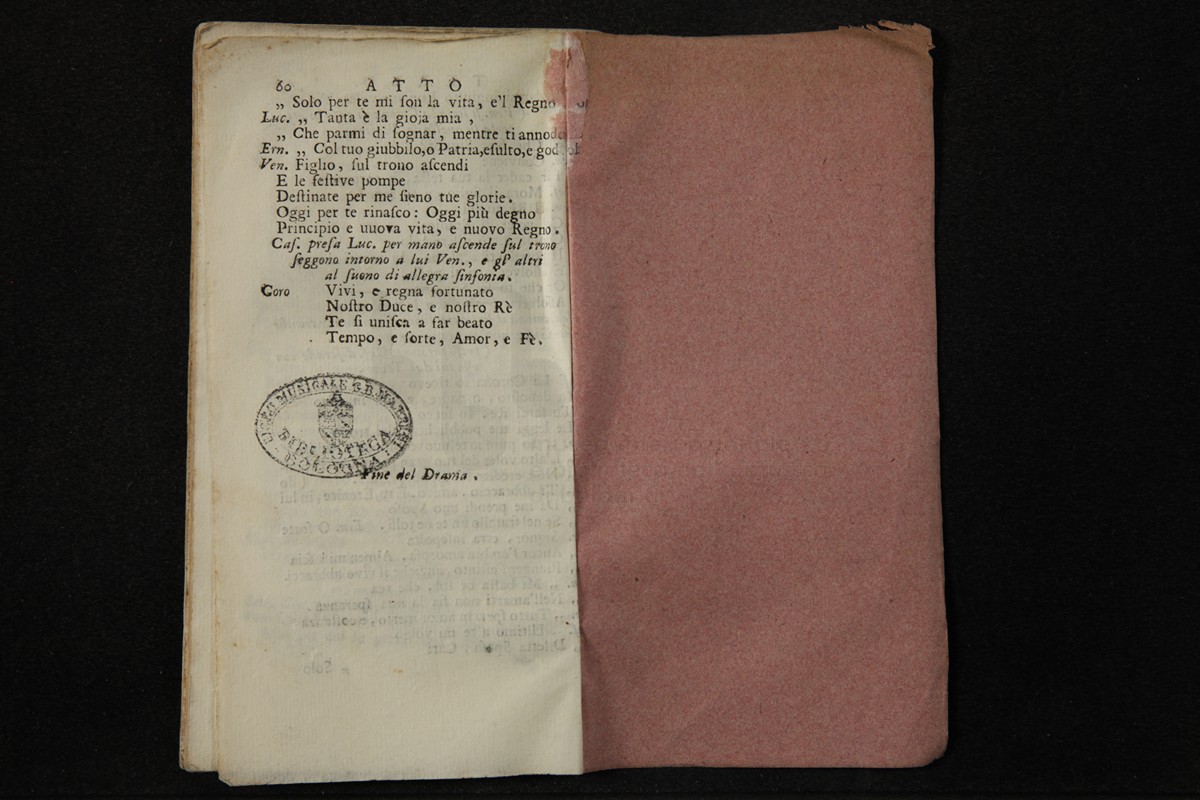 60 ATTO
„ Solo per te mi ſon la vita, e'l Regno
Luc. „ Tanta è la gioja mia ,
„ Che parmi di ſognar, mentre ti annodo
Ern. „ Col tuo giubbilo,o Patria,eſulto,e god
Ven. Figlio, ſul trono aſcendi
E le feſtive pompe
Deſtinate per me ſieno tue glorie.
Oggi per te rinaſco: Oggi più degno
Principio e nuova vita, e nuovo Regno.
Caſ. preſa Luc. per mano aſcende ſul trono
ſeggono intorno a lui Ven., e gl' altri
al ſuono di allegra ſinfonia.
Coro Vivi, e regna fortunato
Noſtro Duce, e noſtro Rè
Te ſi uniſca a far beato
Tempo, e ſorte, Amor, e Fè.
LICEO MUSICALE G.B. MARTINI
BIBLIOTECA
BOLOGNA
Fine del Drama.